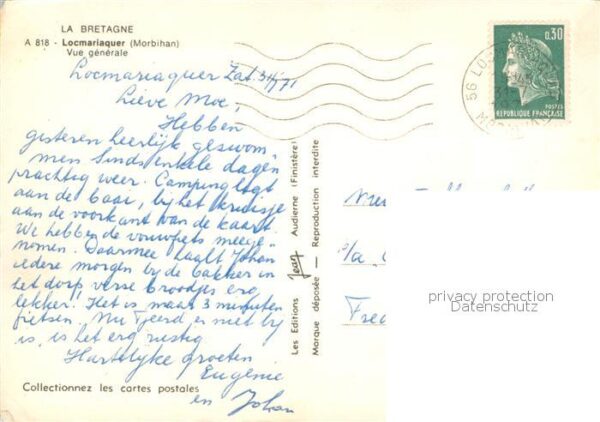 LA BRETAGNE
A 818 - Locmariaquer (Morbihan)
Vue générale
Locmariaquer Zat. 31/7/71
Lieve Moe,
Hebben
gisteren heerlijk gezwom-
men. Sinds enkele dagen
prachtig weer. Camping ligt
aan de baai, bij het kruisje
aan de voorkant van de kaart.
We hebben de vouwfiets meege-
nomen. Daarmee haalt Johan
iedere morgen bij de bakker in
het dorp verse broodjes erg
lekker! Het is maar 3 minuten
fietsen. Nu Tjeerd er niet bij
is, is het erg rustig
Hartelijke groeten
Eugenie
en Johan
Collectionnez les cartes postales
Les Editions Jean Audierne (Finistère)
Marque déposée — Reproduction interdite
0,30
POSTES
REPUBLIQUE FRANÇAISE
56
p/a
privacy protection
Datenschutz